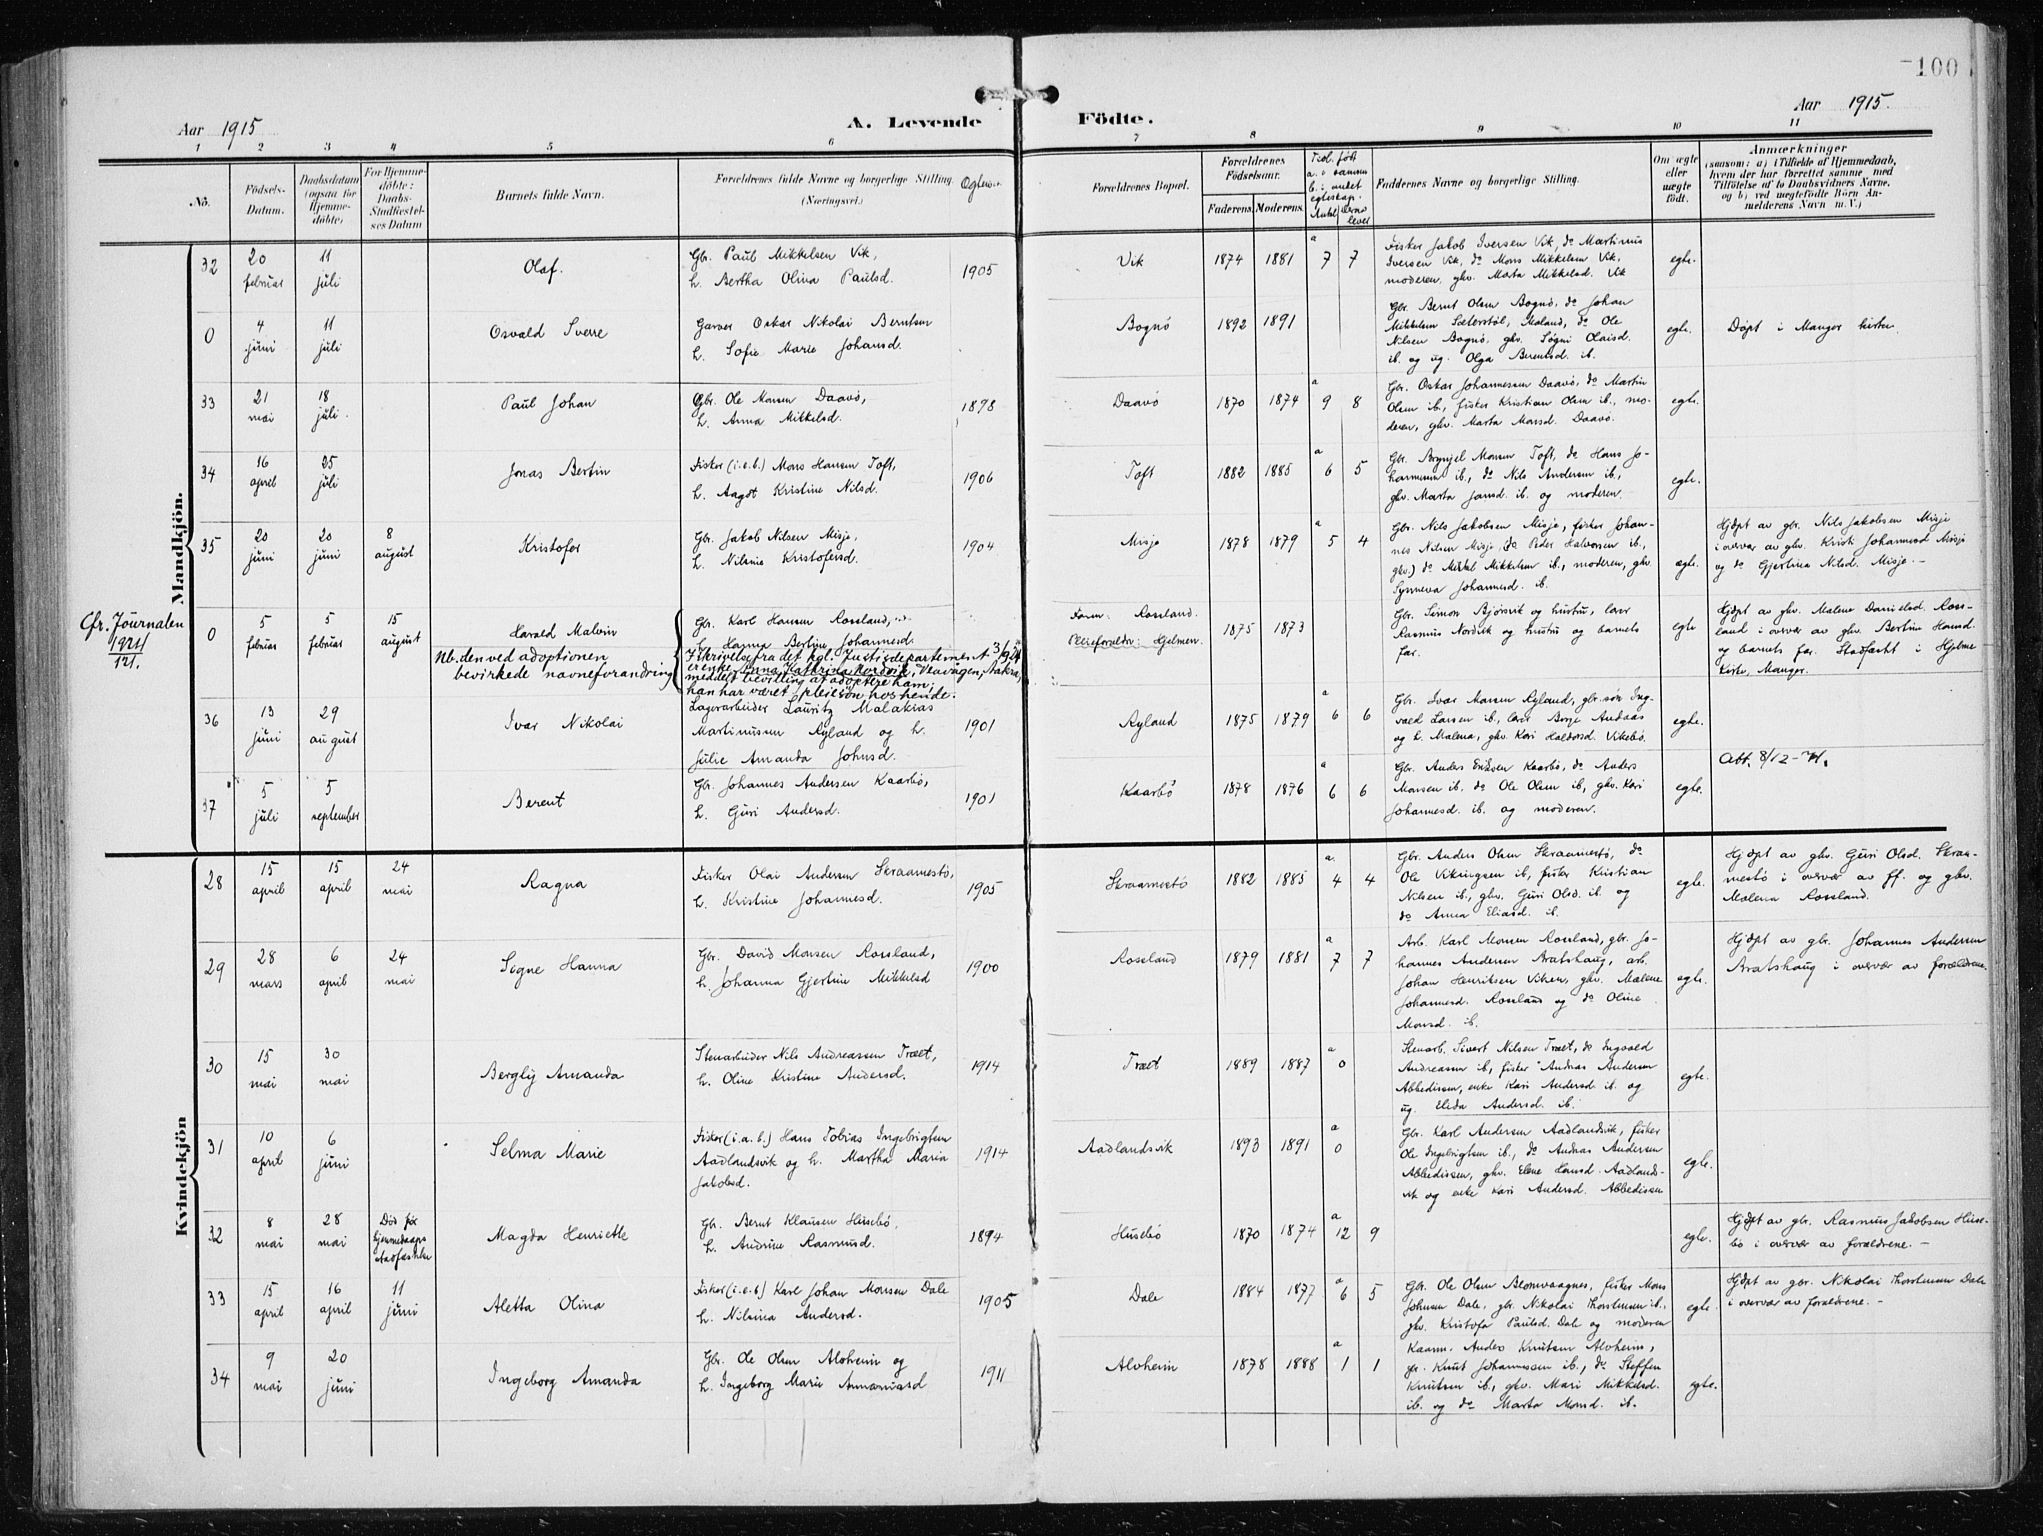 100
Aar 1915
A. Levende
Födte.
Aar 1915.
1 2 3 4 5 6 7 8 9 10 11
No.
Födsels-Datum.
Daabsdatum (ogsaa for Hjemme-döbte)
For Hjemme-döbte: Daabs-Stadfæstel-ses Datum
Barnets fulde Navn.
Forældrenes fulde Navne og borgerlige Stilling. (Næringsvei.)
Forældrenes Bopæl.
Forældrenes Födselsaar.
Faderens. Moderens.
Faddernes Navne og borgerlige Stilling.
Om ægte eller uægte födt.
Anmærkninger
(saasom: a) i Tilfælde af Hjemmedaab,
hvem der har forrettet samme med
Tilföielse af to Daabsvidners Navne,
og b) ved uægtefödte Börn An-
melderens Navn m. V.)
Mandkjön.
32 20 februar 11 juli Olaf.
Gbr. Paul Mikkelsen Vik,
h. Bertha Olina Paulsd. 1905
Vik 1874 1881 a 7 7
Fisker Jakob Iversen Vik, do Martinus
Iversen Vik, do Mons Mikkelsen Vik,
moderen, ghv. Marta Mikkelsd. Vik
egte.
0 4 juni 11 juli Osvald Sverre
Garver Oskar Nikolai Berntsen
h. Sofie Marie Johansd.
Bognö 1892 1891
Gbr. Bernt Olsen Bognö, do Johan
Mikkelsen Sæterstöl, Moland, do Ole
Nilsen Bognö, ghv. Sögni Olaisd.
ib. og ug. Olga Berentsd. ib.
egte. Döpt i Manger kirke.
33 21 mai 18 juli. Paul Johan
Gbr. Ole Monsen Daavö,
h. Anna Mikkelsd. 1898
Daavö 1870 1874 a 9 8
Gbr. Oskar Johannessen Daavö, do Martin
Olsen ib., fisker Kristian Olsen ib., mo-
deren, ghv. Marta Monsd. Daavö.
egte.
34 16 april 25 juli Jonas Bertin
Fisker (i.e.b.) Mons Hansen Toft,
h. Aagot Kristine Nilsd. 1906
Toft 1882 1885 a 6 5
Gbr. Brynjel Monsen Toft, do Hans Jo-
hannessen ib., do Nils Andersen ib.,
ghv. Marta Jansd. ib. og moderen.
egte.
35 20 juni 20 juni 8 august Kristofer
Gbr. Jakob Nilsen Misje,
h. Nilsine Kristofersd. 1904
Misje 1878 1879 a 5 4
Gbr. Nils Jakobsen Misje, fisker Johan-
nes Nilsen Misje, do Peder Halvorsen ib.,
ghv.) do Mikkel Mikkelsen ib., moderen, ghv.
Synneva Johannesd. ib.
ægte.
Hjdöpt av gbr. Nils Jakobsen Misje
i overvær av ghv. Kristi Johannesd Misje
og do Gjertina Nilsd. Misje.-
Cfr. Journalen
1924
121.
0 5 februar 5 februar 15 august Harald Malvin
Gbr. Karl Hansen Rossland,
h. Hanna Bertine Johannesd.
Nb. den ved adoptionen
bevirkede navneforandring
I skrivelse fra det kgl. Justisdepartement 3/9 24
er enke Anna Kathrina Nordvik, Veavågen, Aakra,
meddelt bevilling at adoptere ham;
han har været pleiesön hos hende.
Foren: Rossland.
Pleieforældre: Hjelmen. 1875 1873
Gbr. Simon Bjørsvik og hustru, lærer
Rasmus Nordvik og hustru og barnets
far.
egte
Hjdöpt av ghv. Malene Danielsd. Ross-
land i overvær av ghv. Bertine Hansd.
og barnets far. Stadfæstet i Hjelme
kirke, Manger.
36 13 juni 29 august Ivar Nikolai
Lagerarbeider Lauritz Malakias
Martinussen Ryland og h.
Julie Amanda Johnsd. 1901
Ryland 1875 1879 a 6 6
Gbr. Ivar Monsen Ryland, gbr.sön Ing-
vald Larsen ib., lærer Börje Andaas
og h. Malena, ghv. Kari Haldorsd. Vikebö.
egte.
Att. 8/12-71.
37 5 juli 5 september Berent
Gbr. Johannes Andersen Kaarbö,
h. Guri Andersd. 1901
Kaarbö 1878 1876 a 6 6
Gbr. Anders Eriksen Kaarbö, do Anders
Monsen ib. do Ole Olsen ib, ghv. Kari
Johannesd. ib. og moderen.
egte.
Kvindekjön
28 15 april 15 april 24 mai Ragna
Fisker Olai Andersen Skraamestö,
h. Kristine Johannesd. 1905
Skraamestö 1882 1885 a. 4 4
Gbr. Anders Olsen Skraamestö, do
Ole Vikingsen ib, fisker Kristian
Nilsen ib., ghv. Guri Olsd. ib. og
do Anna Eliasd. ib.
egte.
Hjdöpt av ghv. Guri Olsd. Skraa-
mestö i overvær av ff. og ghv.
Malena Rossland.
29 28 mars 6 april 24 mai Signe Hanna
Gbr. David Monsen Rossland,
h. Johanna Gjertine Mikkelsd 1900
Rossland 1879 1881 a 7 7
Arb. Karl Monsen Rossland, gbr. Jo-
hannes Andersen Bratshaug, arb.
Johan Henriksen Viken, ghv. Malene
Johannesd. Rossland og do Oline
Monsd. ib.
egte.
Hjdöpt av gbr. Johannes Andersen
Bratshaug i overvær av forældrene.
30 15 mai 30 mai Berglij Amanda
Stenarbeider Nils Andreassen Træet,
h. Oline Kristine Andersd. 1914
Træet 1889 1887 a 0
Stenarb. Sivert Nilsen Træet, do Ingvald
Andreassen ib, fisker Andreas Andersen
Abbedissen, enke Kari Andersd ib. og
ug. Elida Andersd. ib.
egte.
31 10 april 6 juni Selma Marie
Fisker (i.a.b.) Hans Tobias Ingebrigtsen
Aadlandsvik og h. Martha Maria
Jakobsd. 1914
Aadlandsvik 1893 1891 a 0
Gbr. Karl Andersen Aadlandsvik, fisker
Ole Ingebrigtsen ib., do Andreas Andersen
Abbedissen, ghv. Elene Hansd. Aadlands-
vik og enke Kari Andersd. Abbedissen
egte.
32 8 mai 28 mai Död för hjemmedaaps stadfæstelse Magda Henriette
Gbr. Bernt Klausen Husebö,
h. Andrine Rasmusd. 1894
Husebö 1870 1874 a 12 9
egte.
Hjdöpt av gbr. Rasmus Jakobsen Huse-
bö i overvær av forældrene.-
33 15 april 16 april 11 juni Aletta Olina
Fisker (i.e.b) Karl Johan Monsen Dale
h. Nilsina Andersd. 1905
Dale 1884 1877 a 6 5
Gbr. Ole Olsen Blomvaagnes, fisker Mons
Johnsen Dale, gbr. Nikolai Thorstensen ib.,
ghv. Kristofa Paulsd. Dale og moderen
egte.
Hjdöpt av gbr. Nikolai Thorstensen Dale
i overvær av forældrene.-
34 9 mai 20 juni Ingeborg Amanda
Gbr. Ole Olsen Alvheim og
h. Ingeborg Marie Annaniasd 1911
Alvheim 1878 1888 a 1 1
Kaarm. Anders Knutsen Alvheim,
gr. Knut Johannessen ib., do Steffen
Knutsen ib., ghv. Mari Mikkelsd.
ib. og do Marta Monsd. ib.
egte.